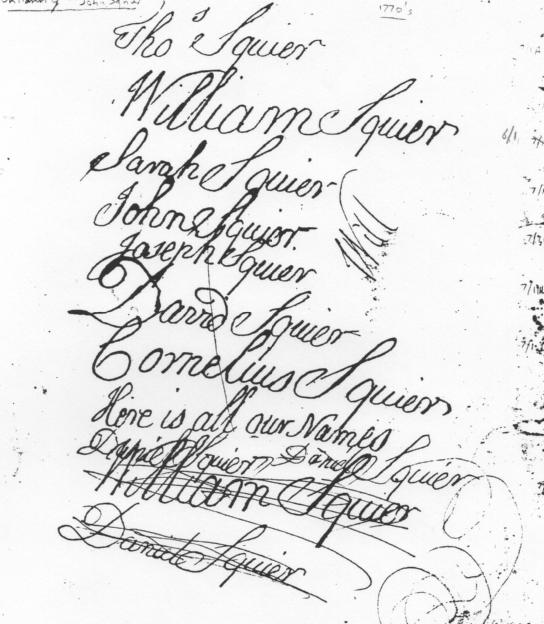 1770's
Tho.s Squier
William Squier
Sarah Squier
John Squier
Will
Joseph Squier
David Squier
Cornelius Squier
Here is all our Names
Daniel Squier Daniel Squier
William Squier
Daniele Squier